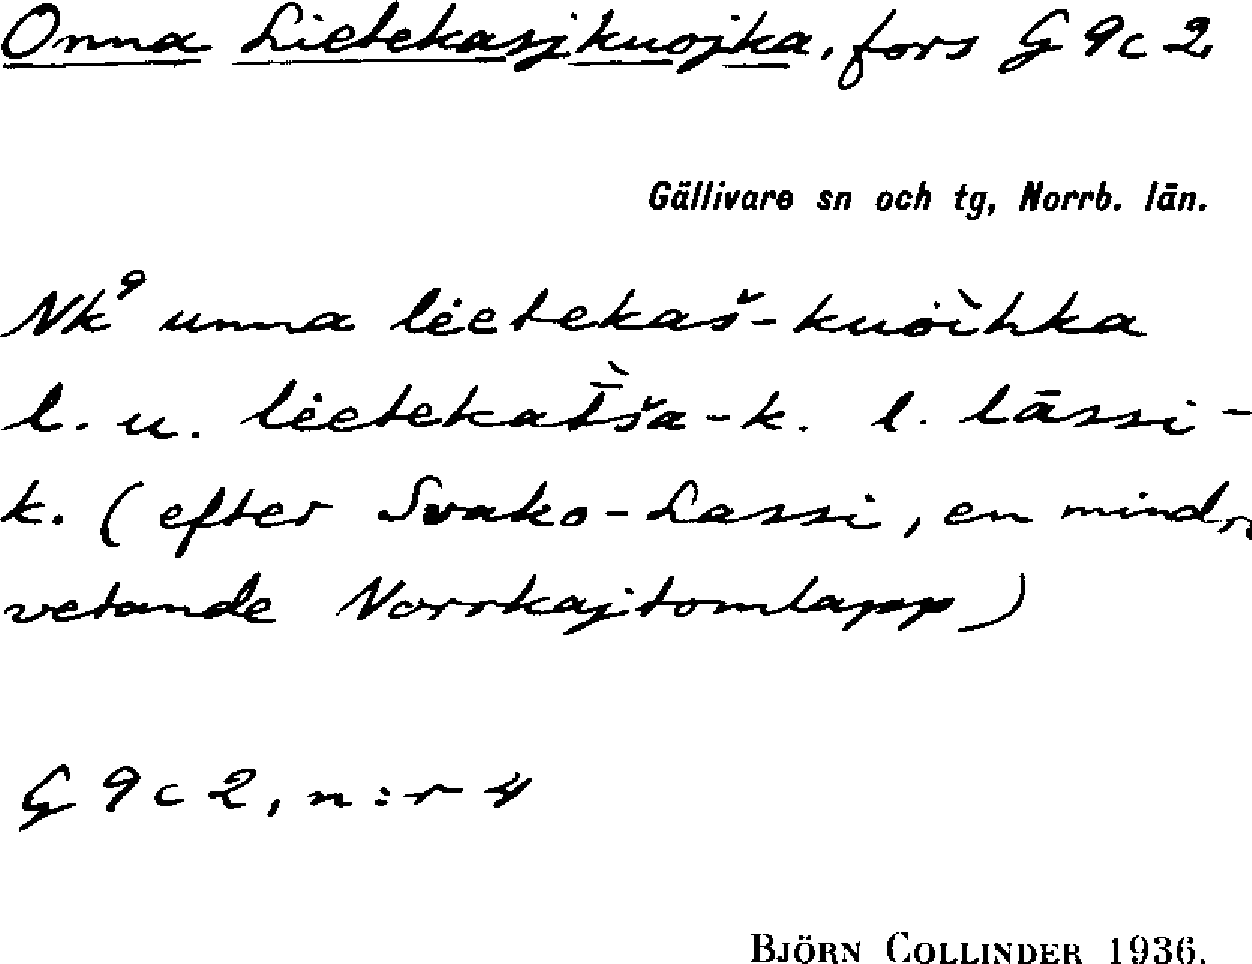 Onna Lietekasjkuojka, fors G 9 c 2
Gällivare sn och tg, Norrb. län.
Nk⁹ unna lėetekaš-kuȯìhka
l. u. lėetekat̄̀ša-k. l. lāssi-
k. (efter Svako-Lassi, en mindre
vetande Norrkajtomlapp)
G 9 c 2, n:r 4
BJÖRN COLLINDER 1936.